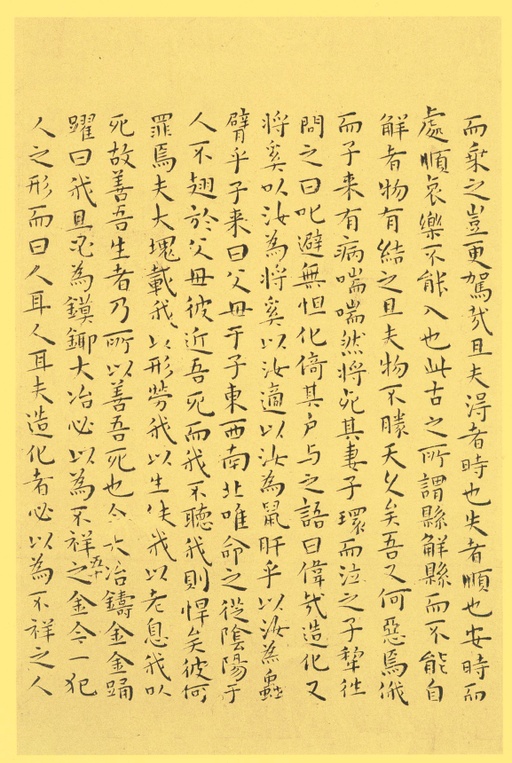 而乘之豈更駕哉且夫得者時也失者順也安時而
處順哀樂不能入也此古之所謂縣解縣而不能自
解者物有結之且夫物不勝天久矣吾又何惡焉俄
而子来有病喘喘然將死其妻子環而泣之子犂往
問之曰叱避無怛化倚其户与之語曰偉哉造化又
將奚以汝為將奚以汝適以汝為鼠肝乎以汝為蟲
臂乎子来曰父母于子東西南北唯命之從陰陽于
人不翅於父母彼近吾死而我不聽我則悍矣彼何
罪焉夫大塊載我以形勞我以生佚我以老息我以
死故善吾生者乃所以善吾死也今大冶鑄金金踊
五十
躍曰我且必為鏌鋣大冶必以為不祥之金今一犯
人之形而曰人耳人耳夫造化者必以為不祥之人